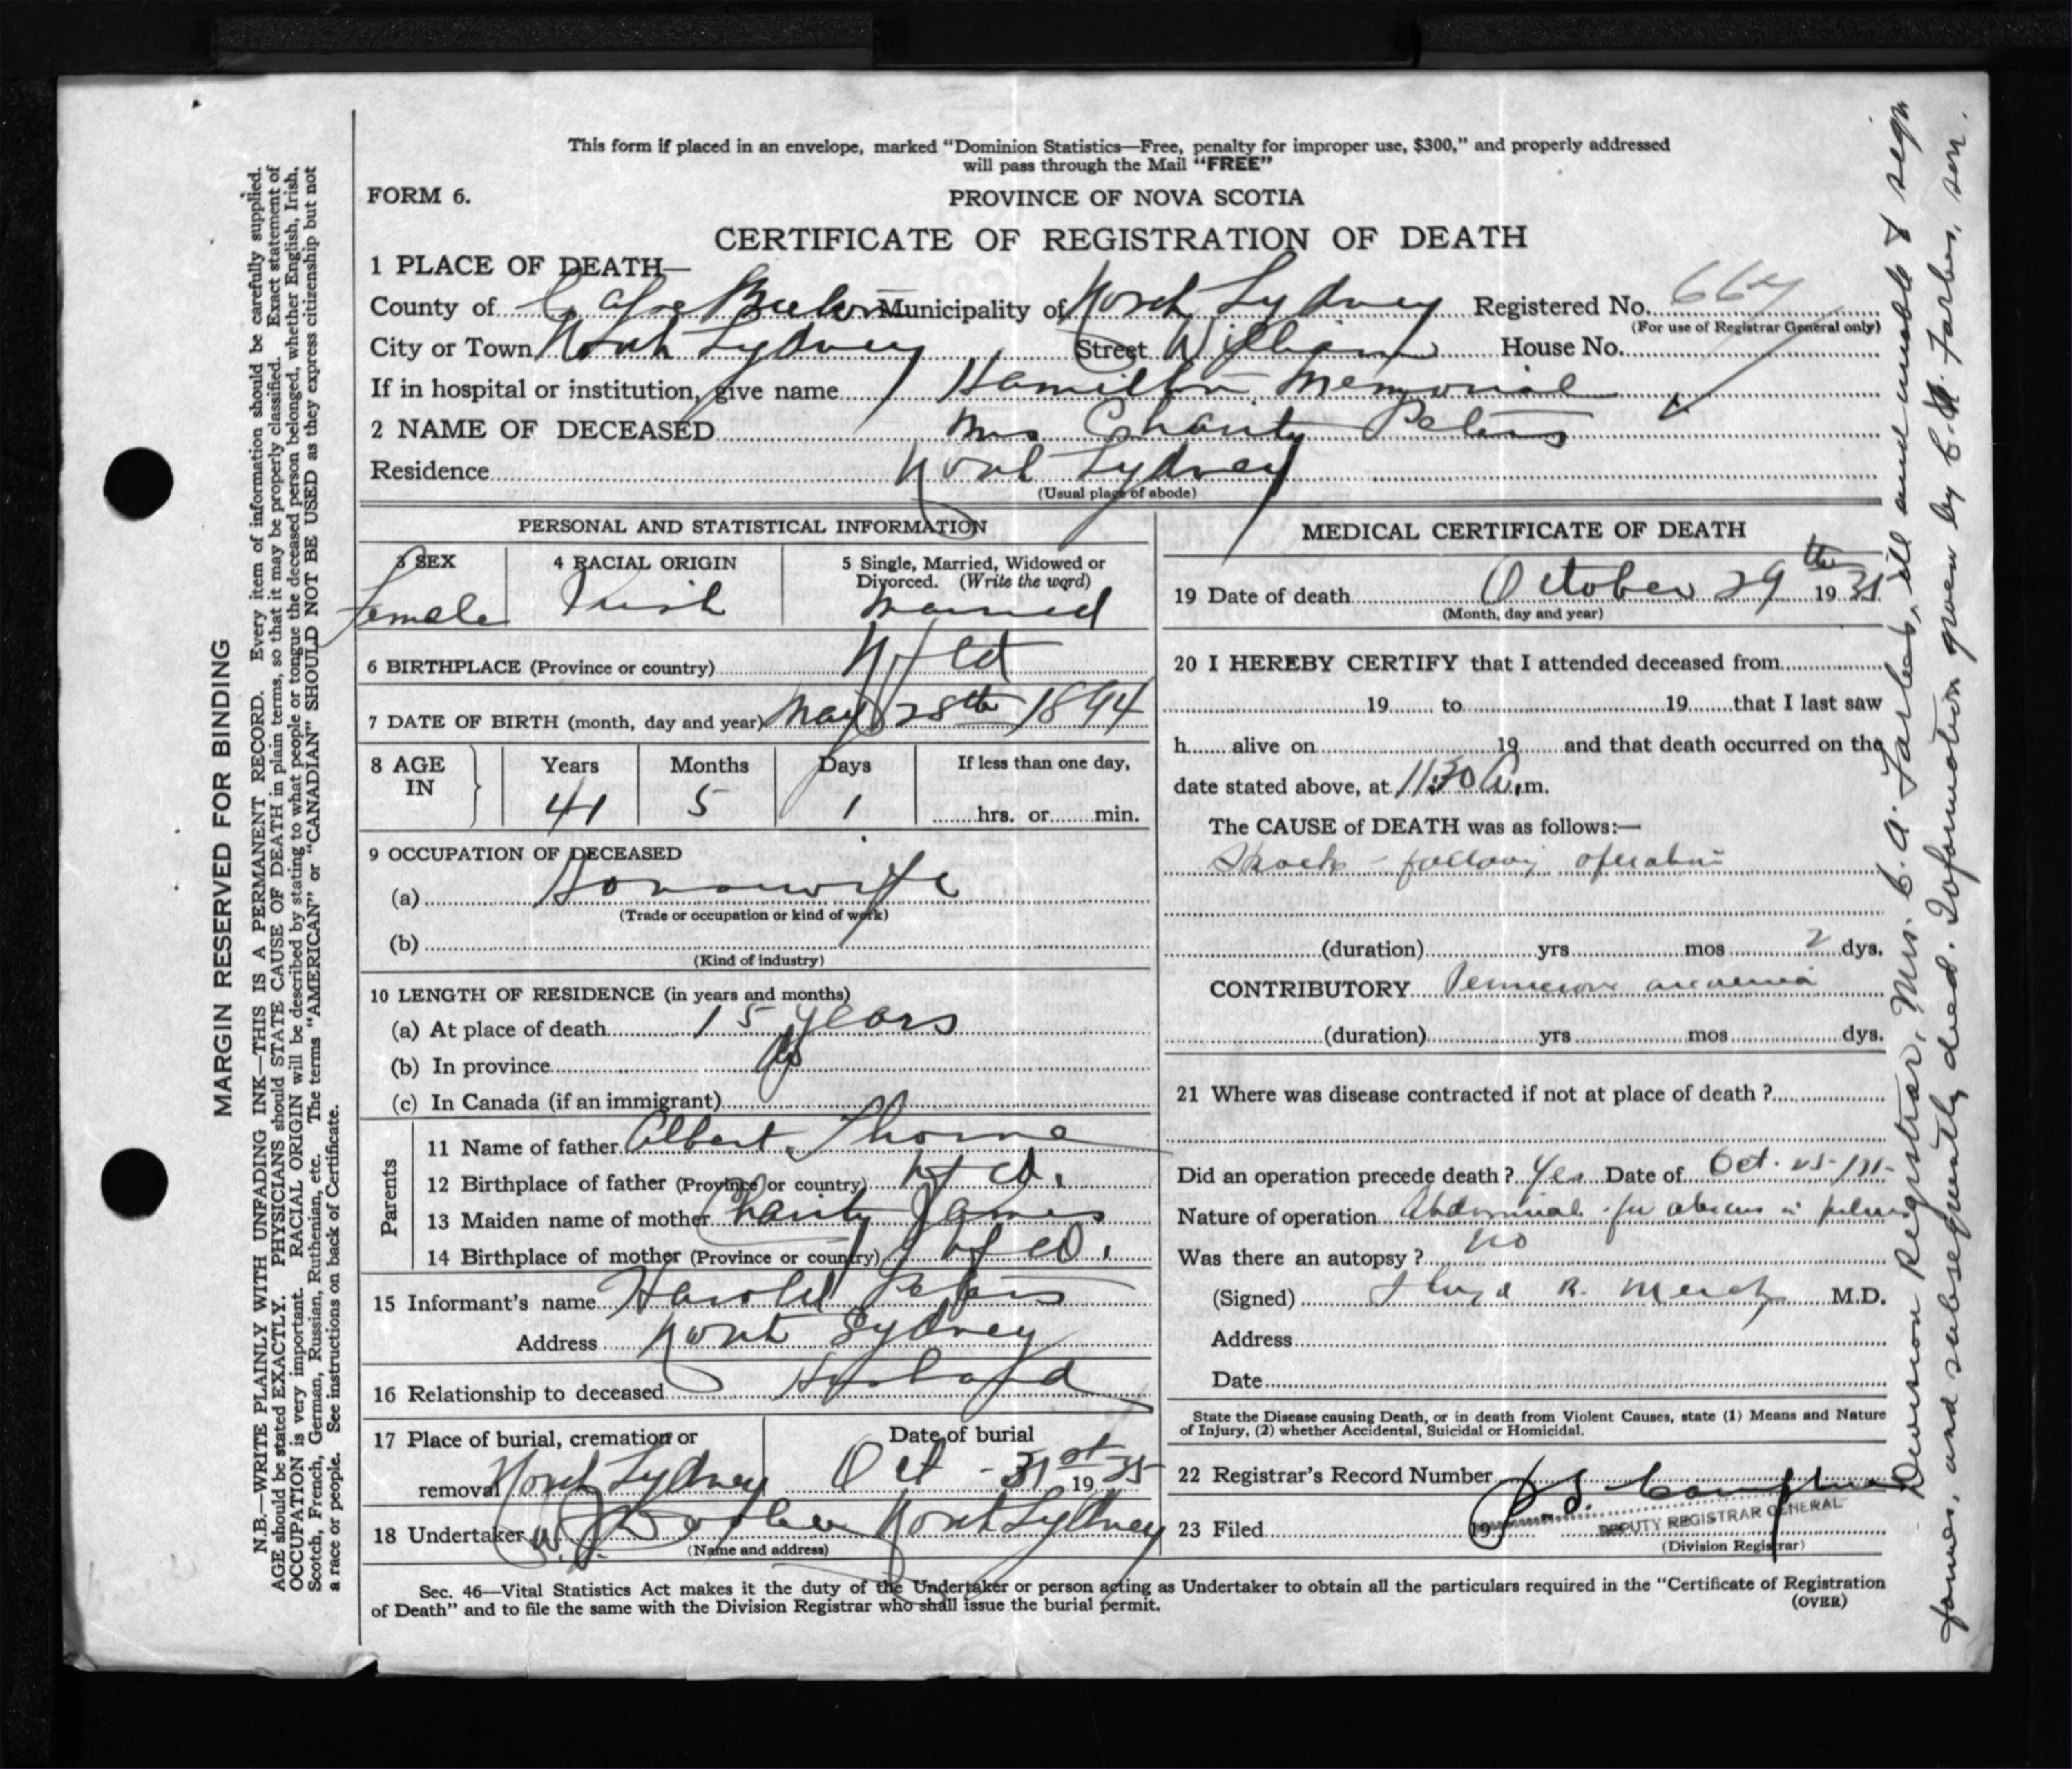 This form if placed in an envelope, marked "Dominion Statistics—Free, penalty for improper use, $300," and properly addressed
will pass through the Mail "FREE"
FORM 6.
PROVINCE OF NOVA SCOTIA
CERTIFICATE OF REGISTRATION OF DEATH
1 PLACE OF DEATH—
County of Cape Breton Municipality of North Sydney Registered No. 667
(For use of Registrar General only)
City or Town North Sydney Street William House No.
If in hospital or institution, give name Hamilton Memorial
2 NAME OF DECEASED Mrs Charity Peters
Residence North Sydney
(Usual place of abode)
PERSONAL AND STATISTICAL INFORMATION
3 SEX 4 RACIAL ORIGIN 5 Single, Married, Widowed or
Divorced. (Write the word)
Female Irish Married
6 BIRTHPLACE (Province or country) Nfld
7 DATE OF BIRTH (month, day and year) May 28th 1894
8 AGE IN Years Months Days If less than one day,
41 5 1 hrs. or min.
9 OCCUPATION OF DECEASED
(a) Housewife
(Trade or occupation or kind of work)
(b)
(Kind of industry)
10 LENGTH OF RESIDENCE (in years and months)
(a) At place of death 15 years
(b) In province do
(c) In Canada (if an immigrant)
Parents
11 Name of father Albert Thorne
12 Birthplace of father (Province or country) Nfld.
13 Maiden name of mother Charity James
14 Birthplace of mother (Province or country) Nfld.
15 Informant's name Harold Peters
Address North Sydney
16 Relationship to deceased Husband
17 Place of burial, cremation or Date of burial
removal North Sydney Oct - 31st 1935
18 Undertaker W. J. North Sydney
(Name and address)
MEDICAL CERTIFICATE OF DEATH
19 Date of death October 29th 1935
(Month, day and year)
20 I HEREBY CERTIFY that I attended deceased from
19 to 19 that I last saw
h alive on 19 and that death occurred on the
date stated above, at 11:30 A.m.
The CAUSE of DEATH was as follows:—
Shock - following operation
(duration) yrs mos 2 dys.
CONTRIBUTORY Pernicious anaemia
(duration) yrs mos dys.
21 Where was disease contracted if not at place of death ?
Did an operation precede death ? Yes Date of Oct.
Nature of operation Abdominal for abscess in pelvis
Was there an autopsy ? no
(Signed) R. M.D.
Address
Date
State the Disease causing Death, or in death from Violent Causes, state (1) Means and Nature
of Injury, (2) whether Accidental, Suicidal or Homicidal.
22 Registrar's Record Number
23 Filed 19
DEPUTY REGISTRAR GENERAL
(Division Registrar)
Sec. 46—Vital Statistics Act makes it the duty of the Undertaker or person acting as Undertaker to obtain all the particulars required in the "Certificate of Registration
of Death" and to file the same with the Division Registrar who shall issue the burial permit.
(OVER)
MARGIN RESERVED FOR BINDING
N.B.—WRITE PLAINLY WITH UNFADING INK—THIS IS A PERMANENT RECORD. Every item of information should be carefully supplied.
AGE should be stated EXACTLY. PHYSICIANS should STATE CAUSE OF DEATH in plain terms, so that it may be properly classified. Exact statement of
OCCUPATION is very important. RACIAL ORIGIN will be described by stating to what people or tongue the deceased person belonged, whether English, Irish,
Scotch, French, German, Russian, Ruthenian, etc. The terms "AMERICAN" or "CANADIAN" SHOULD NOT BE USED as they express citizenship but not
a race or people. See instructions on back of Certificate.
Division Registrar, Mr. C. A. Forbes, ill and unable to sign
forms, and subsequently died. Information given by C. H. Forbes, son.